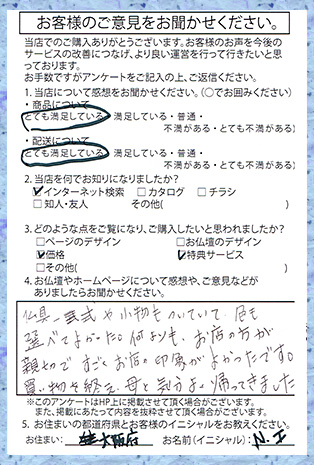 お客様のご意見をお聞かせください。
当店でのご購入ありがとうございます。お客様のお声を今後の
サービスの改善につなげ、より良い運営を行って行きたいと思
っております。
お手数ですがアンケートをご記入の上、ご返信ください。
1. 当店について感想をお聞かせください。(○でお囲みください)
・商品について
(とても満足している・満足している・普通・
不満がある・とても不満がある)
・配送について
(とても満足している・満足している・普通・
不満がある・とても不満がある)
2. 当店を何でお知りになりましたか?
☑インターネット検索 □カタログ □チラシ
□知人・友人 その他( )
3. どのような点をご覧になり、ご購入したいと思われましたか?
□ページのデザイン □お仏壇のデザイン
☑価格 ☑特典サービス
□その他( )
4. お仏壇やホームページについて感想や、ご意見などが
ありましたらお聞かせください。
仏具一式や小物もついていて、色も
選べてよかった。何よりも、お店の方が
親切で すごくお店の印象がよかったです。
買い物を終え、母と気分よく帰ってきました
※このアンケートはHP上に掲載させて頂く場合がございます。
また、掲載にあたって内容を抜粋させて頂く場合がございます。
5. お住まいの都道府県とお客様のイニシャルをお教えください。
お住まい: 大阪府 お名前(イニシャル): N.I